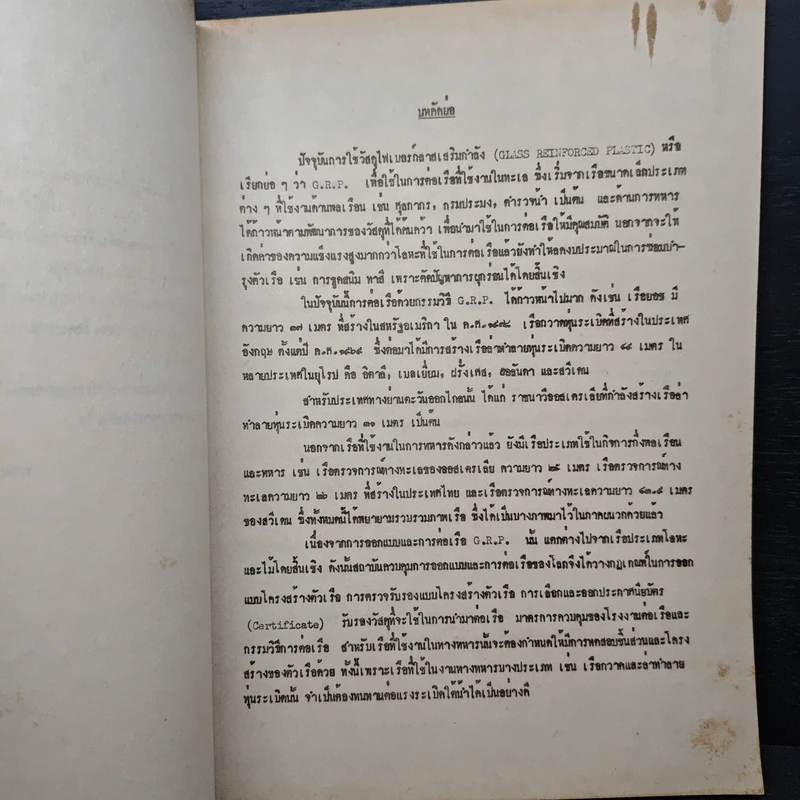 บทคัดย่อ
ปัจจุบันการใช้วัสดุไฟเบอร์กลาสเสริมกำลัง (GLASS REINFORCED PLASTIC) หรือ
เรียกย่อ ๆ ว่า G.R.P. เพื่อใช้ในการต่อเรือที่ใช้งานในทะเล ซึ่งเริ่มจากเรือขนาดเล็กประเภท
ต่าง ๆ ที่ใช้งานด้านพลเรือน เช่น ศุลกากร, กรมประมง, ตำรวจน้ำ เป็นต้น และด้านการทหาร
ได้ก้าวหน้าตามพัฒนาการของวัสดุที่ได้ค้นคว้า เพื่อนำมาใช้ในการต่อเรือให้มีคุณสมบัติ นอกจากจะให้
เกิดค่าของความแข็งแรงสูงมากกว่าโลหะที่ใช้ในการต่อเรือแล้วยังทำให้ลดงบประมาณในการซ่อมบำ-
รุงตัวเรือ เช่น การขูดสนิม ทาสี เพราะตัดปัญหาการผุกร่อนได้โดยสิ้นเชิง
ในปัจจุบันนี้การต่อเรือด้วยกรรมวิธี G.R.P. ได้ก้าวหน้าไปมาก ดังเช่น เรือยอช มี
ความยาว ๓๗ เมตร ที่สร้างในสหรัฐอเมริกา ใน ค.ศ.๑๙๗๘ เรือกวาดทุ่นระเบิดที่สร้างในประเทศ
อังกฤษ ตั้งแต่ปี ค.ศ.๑๙๖๙ ซึ่งต่อมาได้มีการสร้างเรือล่าทำลายทุ่นระเบิดความยาว ๔๔ เมตร ใน
หลายประเทศในยุโรป คือ อิตาลี, เบลเยี่ยม, ฝรั่งเศส, ฮอลันดา และสวีเดน
สำหรับประเทศทางย่านตะวันออกไกลนั้น ได้แก่ ราชนาวีออสเตรเลียที่กำลังสร้างเรือล่า
ทำลายทุ่นระเบิดความยาว ๓๑ เมตร เป็นต้น
นอกจากเรือที่ใช้งานในการทหารดังกล่าวแล้ว ยังมีเรือประเภทใช้ในกิจการกึ่งพลเรือน
และทหาร เช่น เรือตรวจการณ์ทางทะเลของออสเตรเลีย ความยาว ๒๕ เมตร เรือตรวจการณ์ทาง
ทะเลความยาว ๒๖ เมตร ที่สร้างในประเทศไทย และเรือตรวจการณ์ทางทะเลความยาว ๔๓.๙ เมตร
ของสวีเดน ซึ่งทั้งหมดนี้ได้พยายามรวบรวมภาพเรือ ซึ่งได้เป็นบางภาพมาไว้ในภาคผนวกด้วยแล้ว
เนื่องจากการออกแบบและการต่อเรือ G.R.P. นั้น แตกต่างไปจากเรือประเภทโลหะ
และไม้โดยสิ้นเชิง ดังนั้นสถาบันควบคุมการออกแบบและการต่อเรือของโลกจึงได้วางกฎเกณฑ์ในการออก
แบบโครงสร้างตัวเรือ การตรวจรับรองแบบโครงสร้างตัวเรือ การเลือกและออกประกาศนียบัตร
(Certificate) รับรองวัสดุที่จะใช้ในการนำมาต่อเรือ มาตรการควบคุมของโรงงานต่อเรือและ
กรรมวิธีการต่อเรือ สำหรับเรือที่ใช้งานในทางทหารนั้นจะต้องกำหนดให้มีการทดสอบชิ้นส่วนและโครง
สร้างของตัวเรือด้วย ทั้งนี้เพราะเรือที่ใช้ในงานทางทหารบางประเภท เช่น เรือกวาดและล่าทำลาย
ทุ่นระเบิดนั้น จำเป็นต้องทนทานต่อแรงระเบิดใต้น้ำได้เป็นอย่างดี